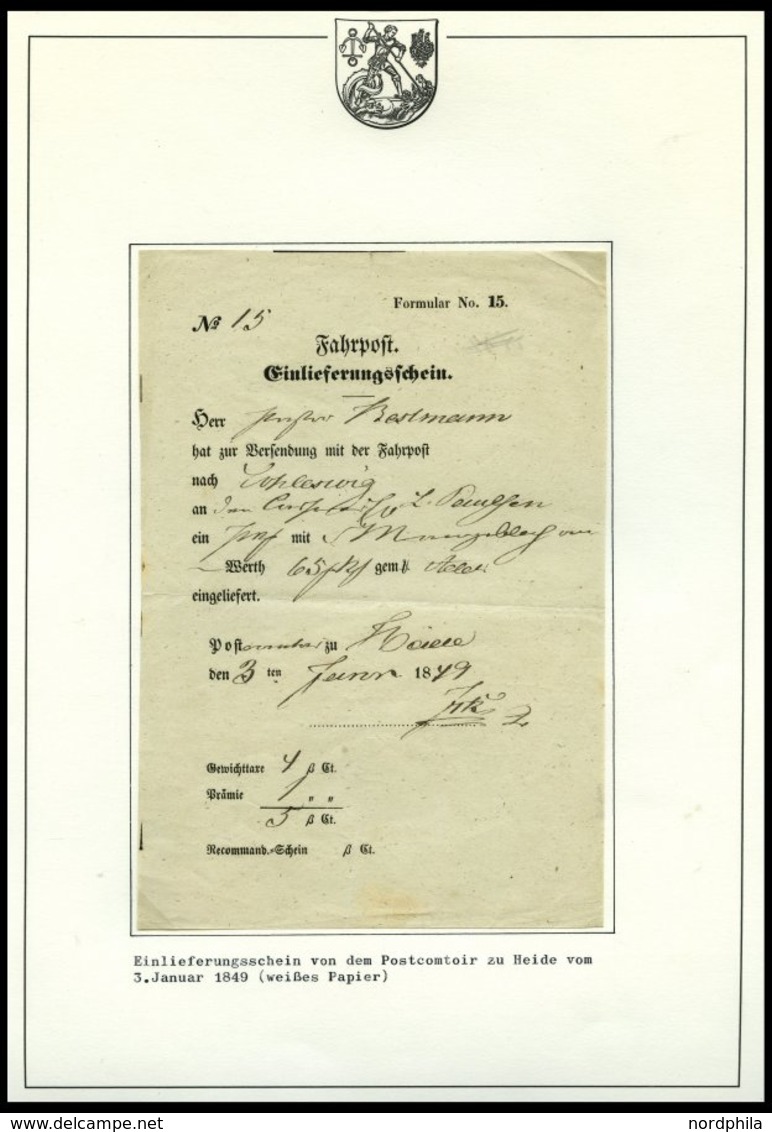 Formular No. 15.
№ 15
Fahrpost.
Einlieferungsschein.
Herr Bestmann
hat zur Versendung mit der Fahrpost
nach Schleswig
an den L. Paulsen
ein mit
Werth 65 gem.
eingeliefert.
Post zu Heide
den 3 ten Janr 1849
Gewichttaxe 4 β Ct.
Prämie 1 „ „
5 β Ct.
Recommand.-Schein β Ct.
Einlieferungsschein von dem Postcomtoir zu Heide vom
3.Januar 1849 (weißes Papier)
www.delcampe.net
nordphila